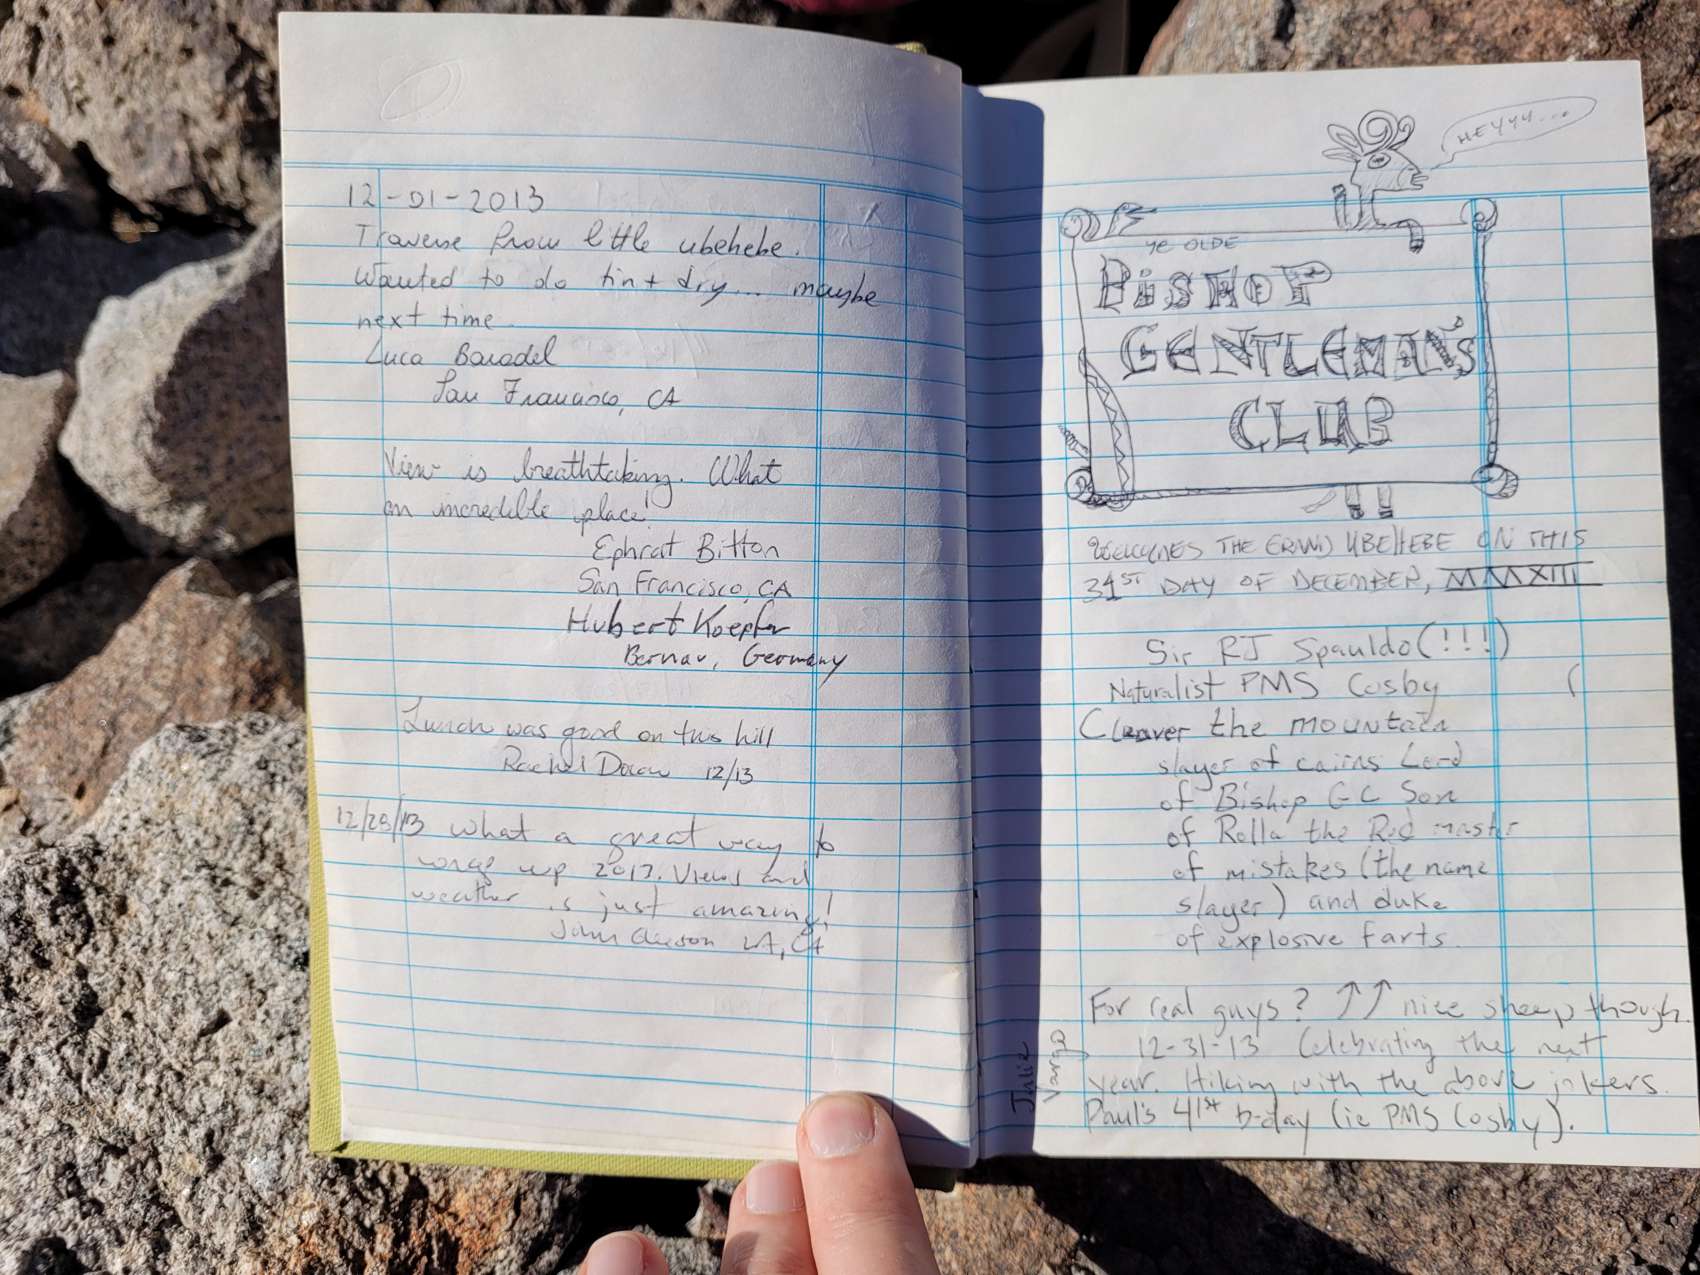 12-01-2013
Traverse from little ubehebe.
Wanted to do tin + dry... maybe
next time.
Luca
San Francisco, CA
View is breathtaking. What
an incredible place!
Ephrat Bitton
San Francisco, CA
Hubert Koepfer
Bernau, Germany
Lunch was good on this hill
Rachel 12/13
12/28/13 What a great way to
wrap up 2013. Views and
weather is just amazing!
John LA, CA
HEYYY...
YE OLDE
BISHOP
GENTLEMAN'S
CLUB
WELCOMES THE GRAND UBEHEBE ON THIS
31ST DAY OF DECEMBER, MMXIII
Sir RJ Spauldo(!!!)
Naturalist PMS Cosby
Cleaver the mountain
slayer of cairns Lord
of Bishop GC Son
of Rolla the Red master
of mistakes (the name
slayer) and duke
of explosive farts.
For real guys? ↑↑ nice sheep though.
12-31-13 Celebrating the next
year. Hiking with the above jokers.
Paul's 41st b-day (ie PMS Cosby).
Julie
Vargo